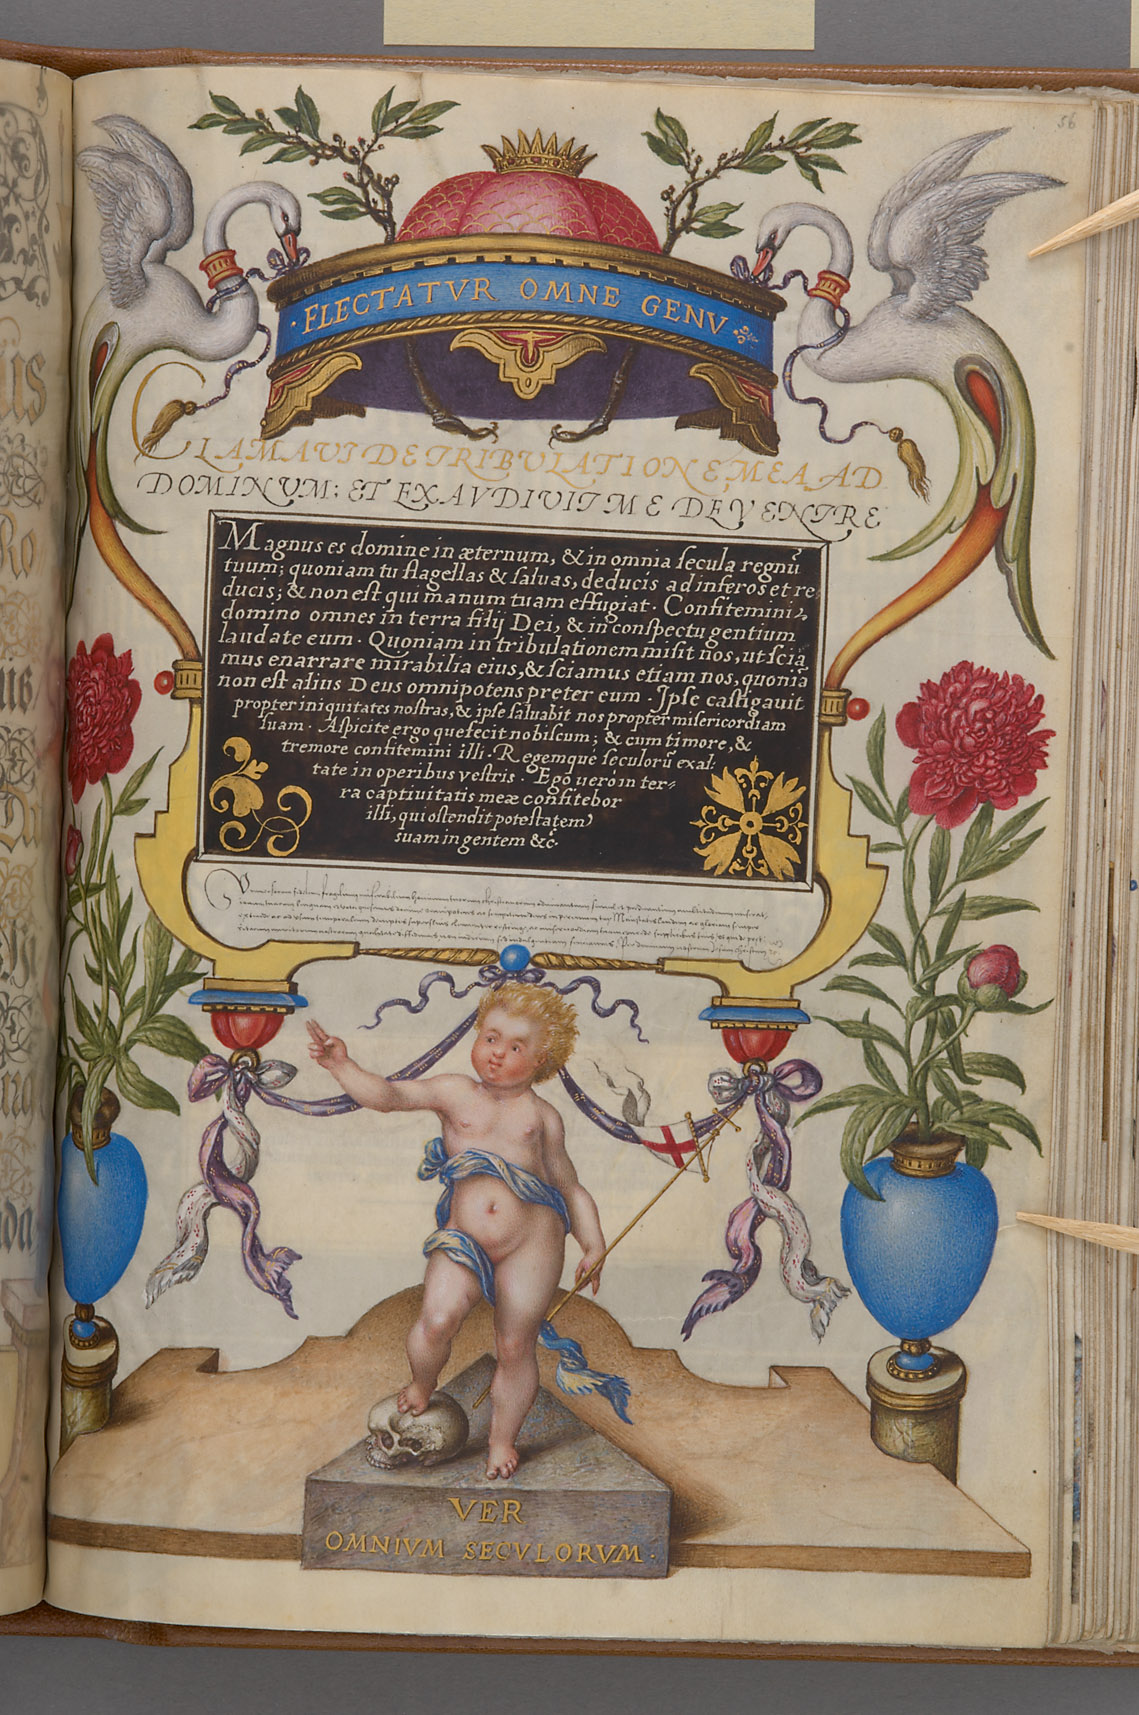 56
· FLECTATVR OMNE GENV
CLAMAVI DE TRIBVLATIONE, MEA AD
DOMINVM: ET EXAVDIVIT ME DE VENTRE
Magnus es domine in æternum, & in omnia secula regnū
tuum; quoniam tu flagellas & saluas, deducis ad inferos et re-
ducis; & non est qui manum tuam effugiat · Confitemini
domino omnes in terra filij Dei, & in conspectu gentium
laudate eum · Quoniam in tribulationem misit nos, ut scia
mus enarrare mirabilia eius, & sciamus etiam nos, quoniā
non est alius Deus omnipotens preter eum · Ipse castigauit
propter iniquitates nostras, & ipse saluabit nos propter misericordiam
suam · Aspicite ergo que fecit nobiscum; & cum timore, &
tremore confitemini illi · Regemque seculorū exal-
tate in operibus vestris · Ego uero in ter-
ra captiuitatis meæ confitebor
illi, qui ostendit potestatem
suam in gentem &c̃·
VER
OMNIVM SECVLORVM ·